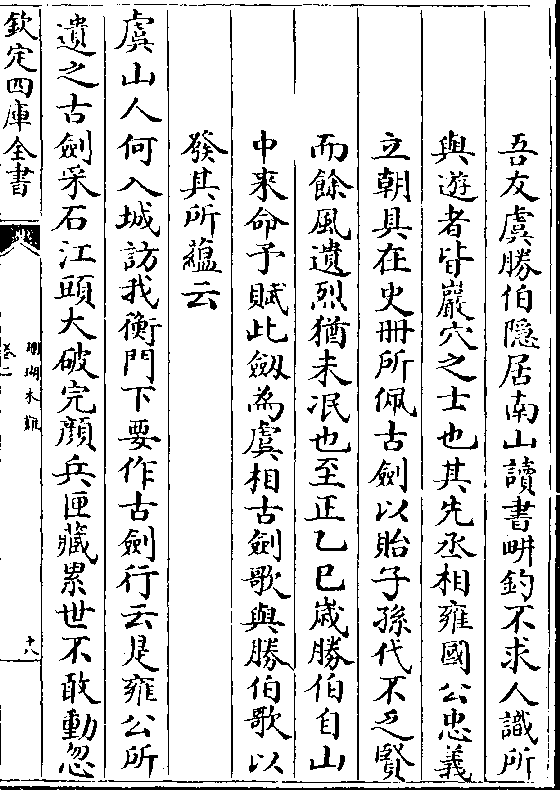 吾友虞勝伯隱居南山讀書畊釣不求人識所
與遊者皆巖穴之士也其先丞相雍國公忠義
立朝具在史冊所佩古劍以貽子孫代不乏賢
而餘風遺烈猶未泯也至正乙巳歲勝伯自山
中来命予賦此劔為虞相古劍歌與勝伯歌以
發其所蘊云
虞山人何入城訪我衡門下要作古劍行云是雍公所
遺之古劍采石江頭大破完顏兵匣藏累世不敢動忽
欽定四庫全書
珊瑚木難
卷二
十八